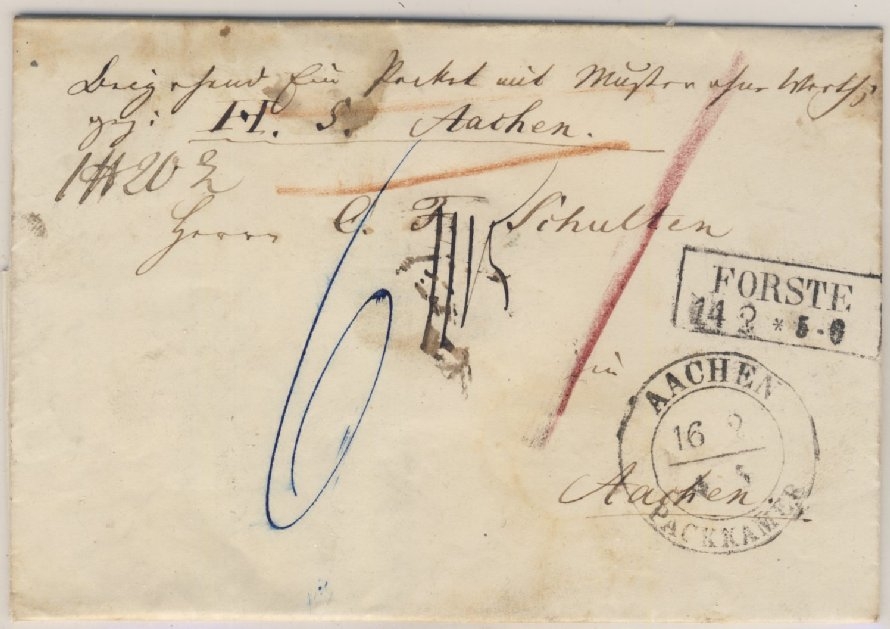 Beigehend Ein Packet mit Muster ohne Werth,
gez: H. S. Aachen.
1 ℔ 20
Herrn C. F. Schulten
FORSTE
14 2 * 5-6
in
AACHEN
16 2
PACKKAMER
Aachen.
6